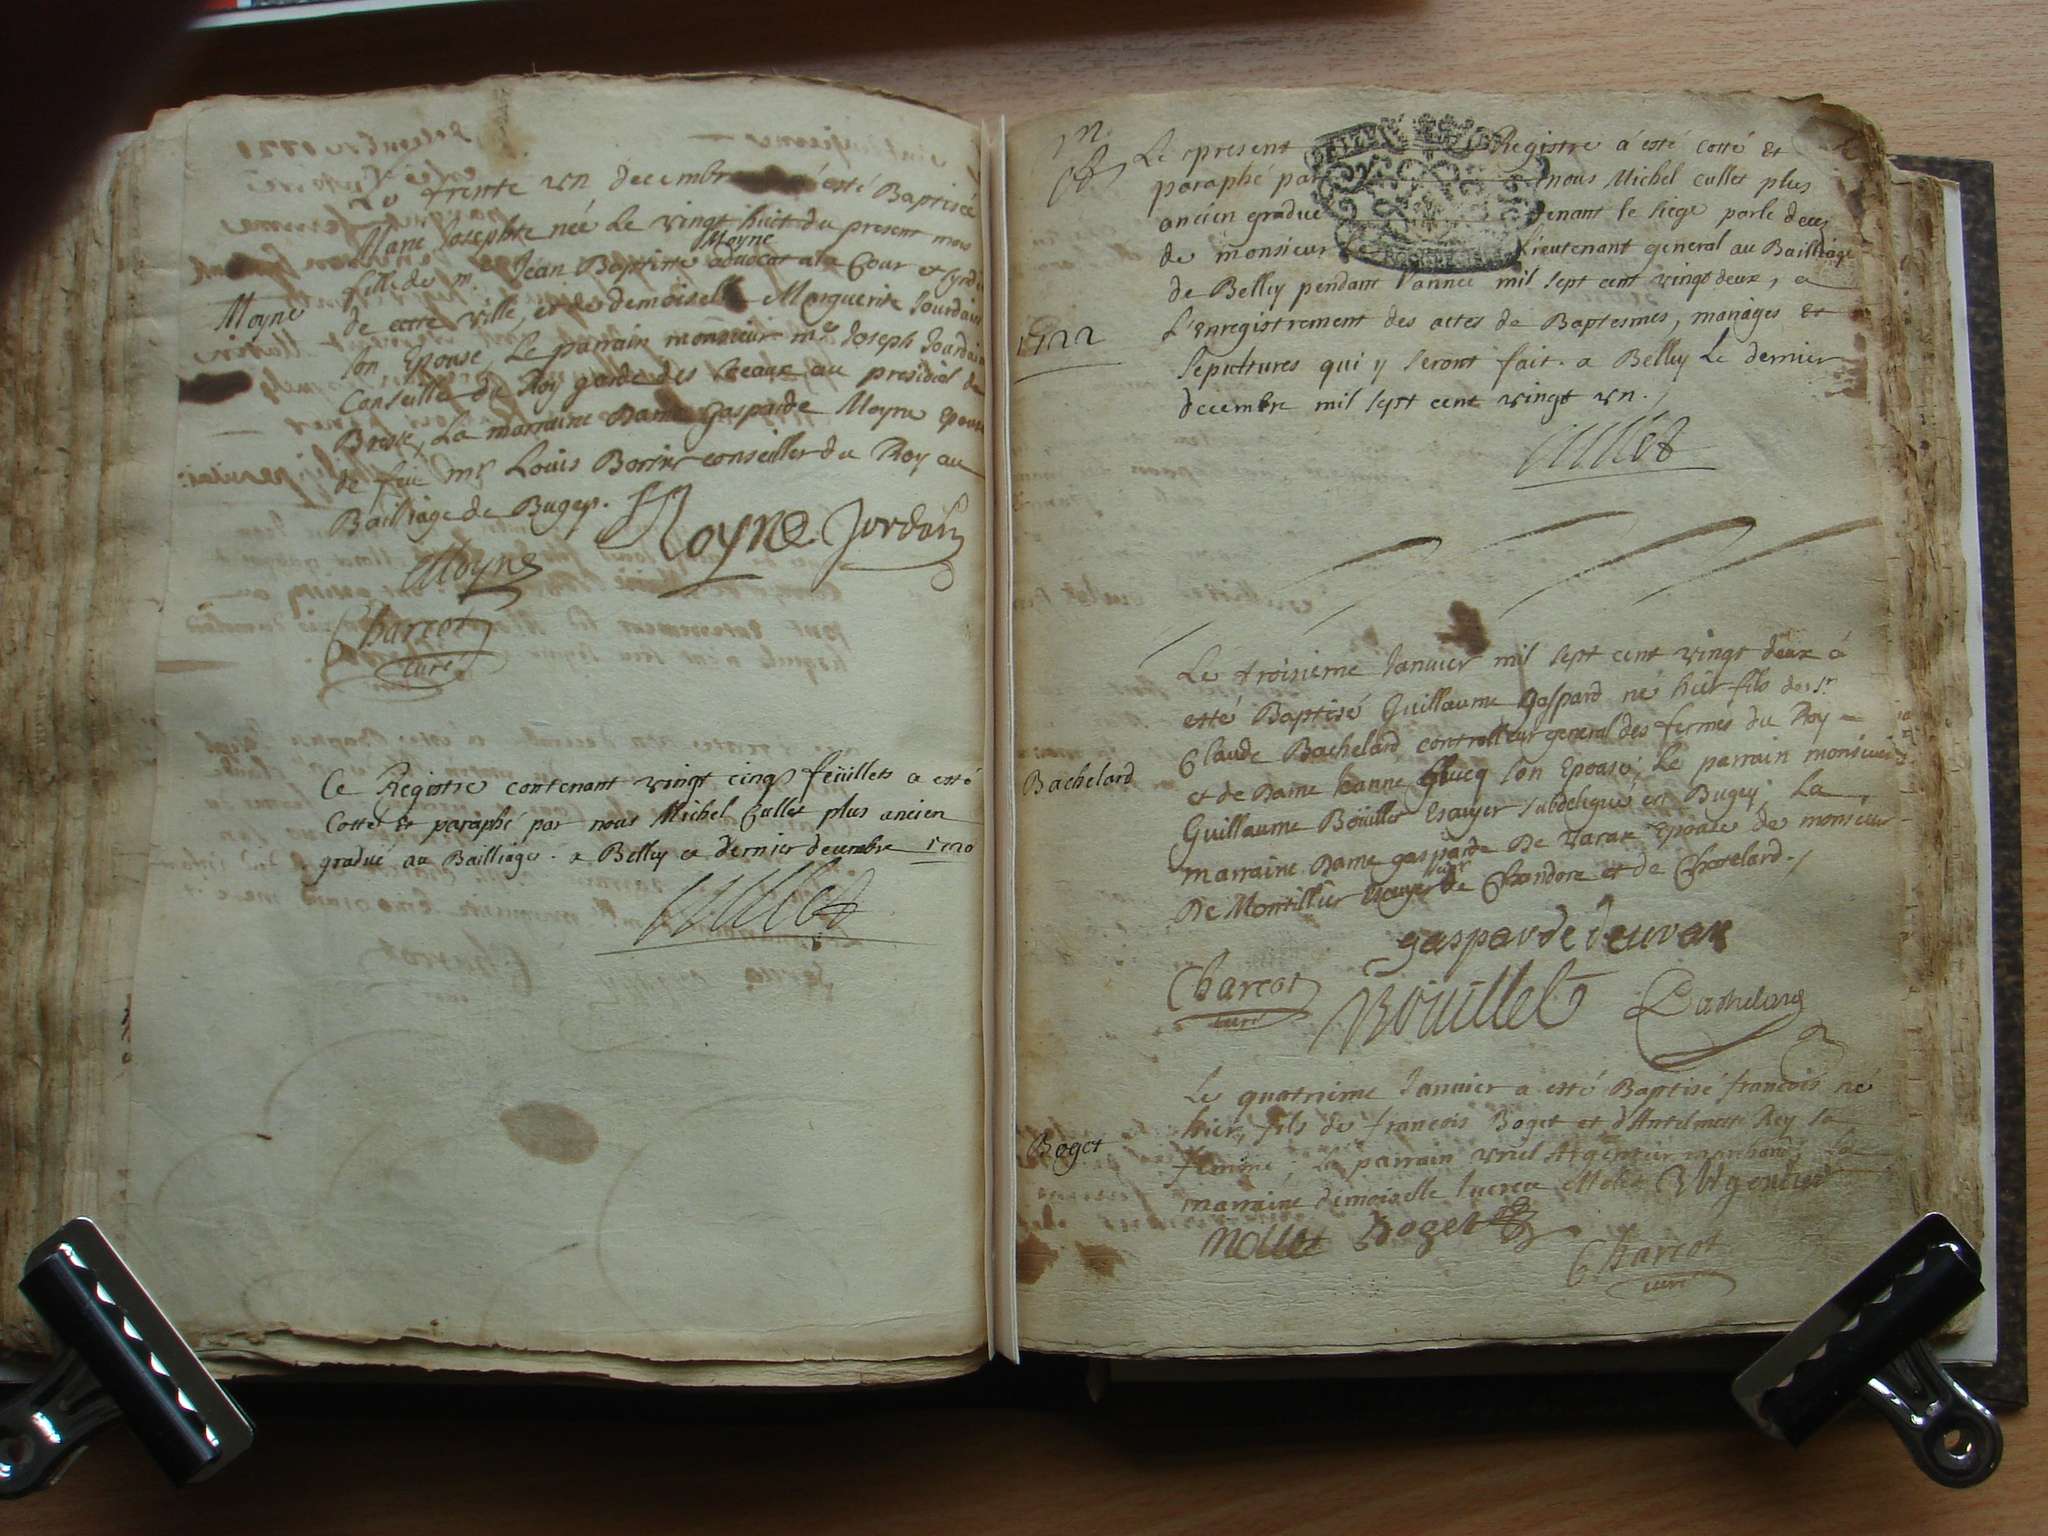 Le trente un decembre a esté Baptisée
Marie Josephte née Le vingt huit du present mois
fille de mr Jean Baptiste Moyne advocat a la Cour et syndic
Moyne
de cette ville, et de demoiselle Marguerite Jourdain
son Epouse, Le parrain monsieur me Joseph Jourdain
Conseiller du Roy garde des sceaux au presidial de
Bresse, La marraine Dame gasparde Moyne Epouse
de feu mr Louis conseiller du Roy au
Bailliage de Bugey.
Moyne Jordain
Moyne
Charcot
curé
Ce Registre contenant vingt cinq feüillets a esté
Cotté et paraphé par nous Michel Cullet plus ancien
gradué au Bailliage. a Belley ce dernier decembre 1720
Cullet
Le present Registre á esté cotté et
paraphé par nous Michel Cullet plus
ancien gradué tenant le siege par le deces
de monsieur Le Lieutenant general au Bailliage
de Belley pendant l'année mil sept cent vingt deux, a
1722
L'Enregistrement des actes de Baptesmes, mariages et
sepultures qui y seront fait. a Belley Le dernier
decembre mil sept cent vingt un.
Cullet
Le troisieme Janvier mil sept cent vingt deux á
esté Baptisé Guillaume Gaspard né hier fils de sr
Claude Bachelard controlleur general des fermes du Roy
Bachelard
et de Dame Jeanne son Epouse; Le parrain monsieur
Guillaume Boüillet Escuyer subdelegué en Bugey. La
marraine Dame gasparde De Varax Epouse de monsieur
De Montillier Escuyer sgr de Chandore et de Chatelard.
gasparde devarax
Charcot
curé
Bouillet Bachelard
Le quatrieme Janvier a esté Baptisé francois né
hier, fils de francois Boget et d'Antelmette Rey sa
Boget
femme; Le parrain uriel Argentier marchand; La
marraine demoiselle lucrece Mollet Argentier
Mollet Boget
Charcot
curé